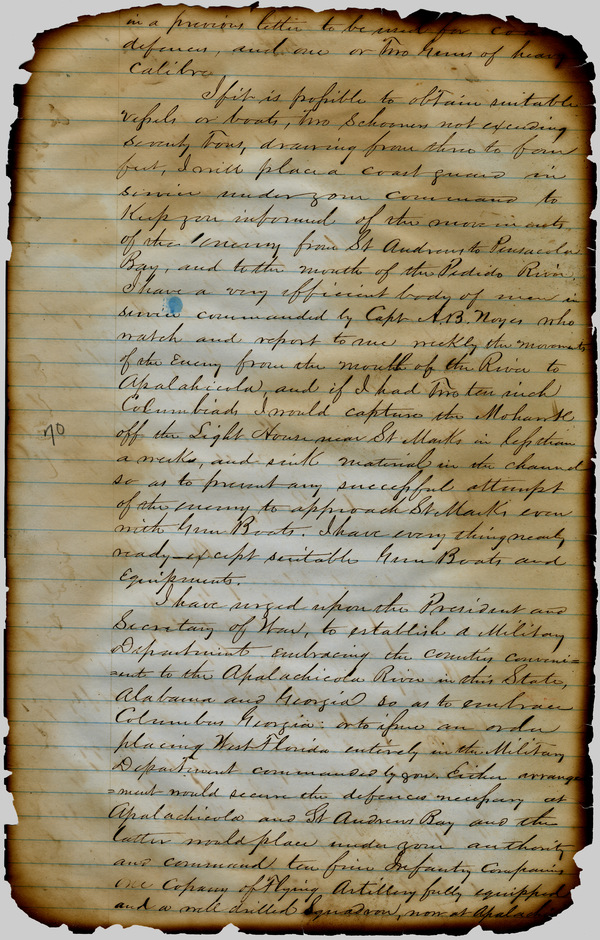 in a previous letter to be used for
defences, and one or Two Guns of heavy
Calibre
If it is possible to obtain suitable
Vessels or boats, Two Schooners not exceeding
Seventy Tons, drawing from three to four
feet, I will place a coast guard in
service under your command to
Keep you informed of the movements
of the Enemy from St Andrews to Pensacola
Bay, and to the mouth of the Pedido River.
I have a very efficient body of men in
service commanded by Capt A.B. Noyes who
watch and report to me weekly the movements
of the Enemy from the mouth of the River to
Apalahicola, and if I had Two ten inch
Columbiads I would capture the Mohawk
off the Light House near St Marks in less than
70
a week, and sink material in the channel
so as to prevent any successful attempt
of the enemy to approach St Marks even
with Gun Boats. I have every thing nearly
ready except suitable Gun Boats and
Equipments.
I have urged upon the President and
Secretary of War, to establish a Military
Department embracing the counties conveni=
=ent to the Apalachicola River in this State,
Alabama and Georgia so as to embrace
Columbus Georgia: or to issue an order
placing West Florida entirely in the Military
Department commanded by you. Either arrange
=ment would secure the defences necessary at
Apalachicola and St Andrews Bay and the
latter would place under your authority
and command ten fine Infantry Companies
one Copany of Flying Artillery fully equipped
and a well drilled Squadron, now at